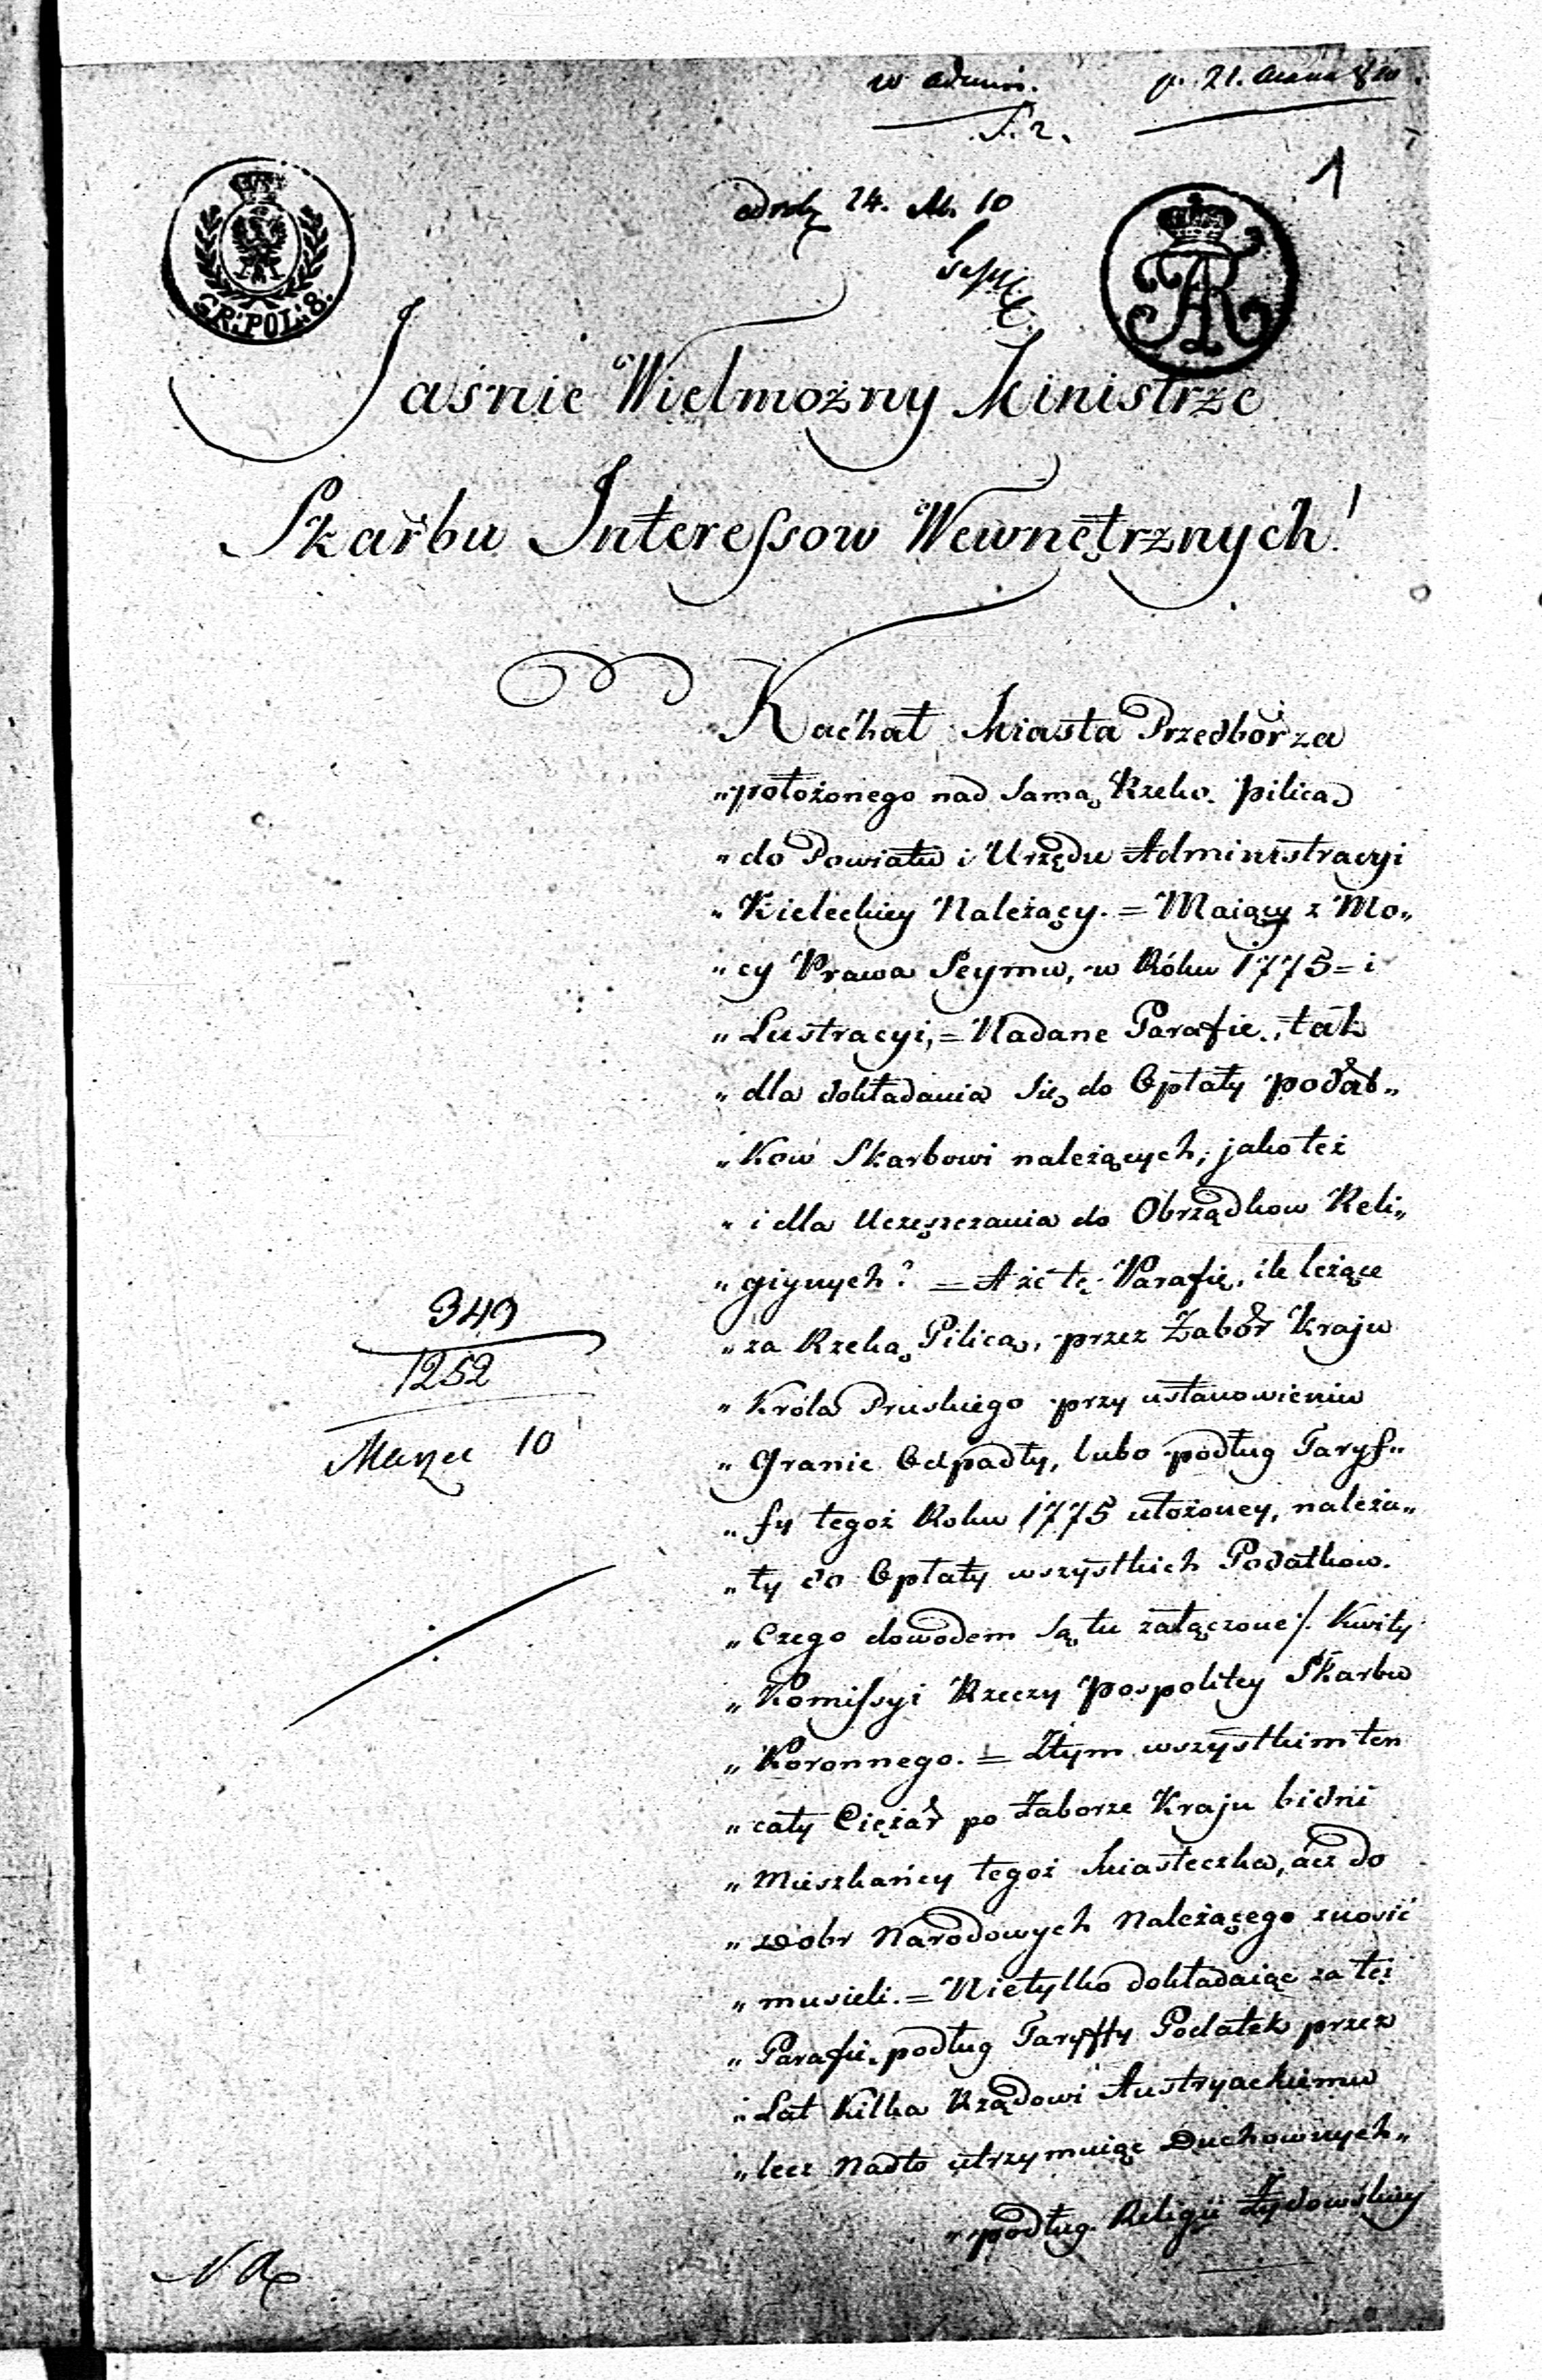 w admin. p. 21. 810.
S. 2.
1
24. M. 10
GR: POL: 8.
Jaśnie Wielmożny Ministrze
Skarbu Interessow Wewnętrznych!
Kachał Miasta Przedborza
„położonego nad Samą Rzeko. Pilicą
„do Powiatu i Urzędu Administracyi
„Kieleckiey Należący. = Maiący z Mo„
„cy Prawa Seymu, w Róku 1775 = i
„Lustracyi, = Nadane Parafie., tak
„dla dokładania Się do Opłaty podat„
„Kow Skarbowi należących, jako też
„i dla Uczęszczania do Obrządkow Reli„
„giynych? = A że tę Parafię, ile leżące
„za Rzeką Pilicą, przez Zabór Kraju
„Króla Pruskiego przy ustanowieniu
„Granic Odpadły, lubo podług Taryf„
„fy tegoż Roku 1775 ułożoney, należa„
„ły do Opłaty wszystkich Podatkow.
„Czego dowodem Są tu załączone /. Kwity
„Komissyi Rzeczy Pospolitey Skarbu
„Koronnego. = Ztym wszystkim ten
„cały Ciężar po Zaborze Kraju biedni
„Mieszkańcy tegoż Miasteczka, acz do
„Dobr Narodowych Należącego znosić
„musieli. = Nietylko dokładaiąc za też
„Parafie, podług Taryffy Podatek przez
„Lat Kilka Rządowi Austryackiemu
„lecz Nadto utrzymuiąc Duchownych„
„podług Religii Żydowskiey
349
1252
Marzec 10